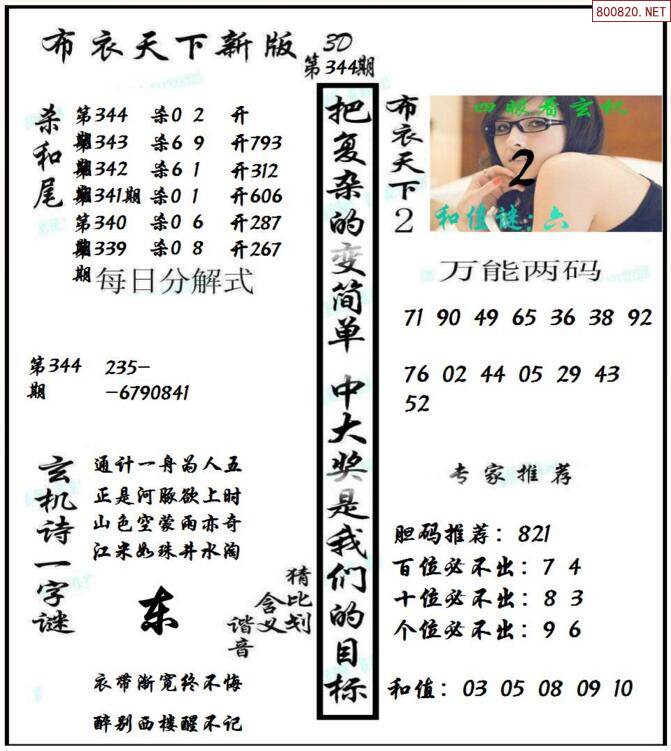 800820.NET
布衣天下新版 3D
第344期
杀和尾
第344期 杀0 2 开
第343期 杀6 9 开793
第342期 杀6 1 开312
第341期 杀0 1 开606
第340期 杀0 6 开287
第339期 杀0 8 开267
每日分解式
第344期 235-
-6790841
玄机诗一字谜
通计一舟为人五
正是河豚欲上时
山色空蒙雨亦奇
江米如珠井水淘
东
猜比划
含义
谐音
衣带渐宽终不悔
醉别西楼醒不记
把复杂的变简单 中大奖是我们的目标
布衣天下2
四眼看玄机
2
和值谜:六
万能两码
71 90 49 65 36 38 92
76 02 44 05 29 43
52
专家推荐
胆码推荐:821
百位必不出:7 4
十位必不出:8 3
个位必不出:9 6
和值:03 05 08 09 10